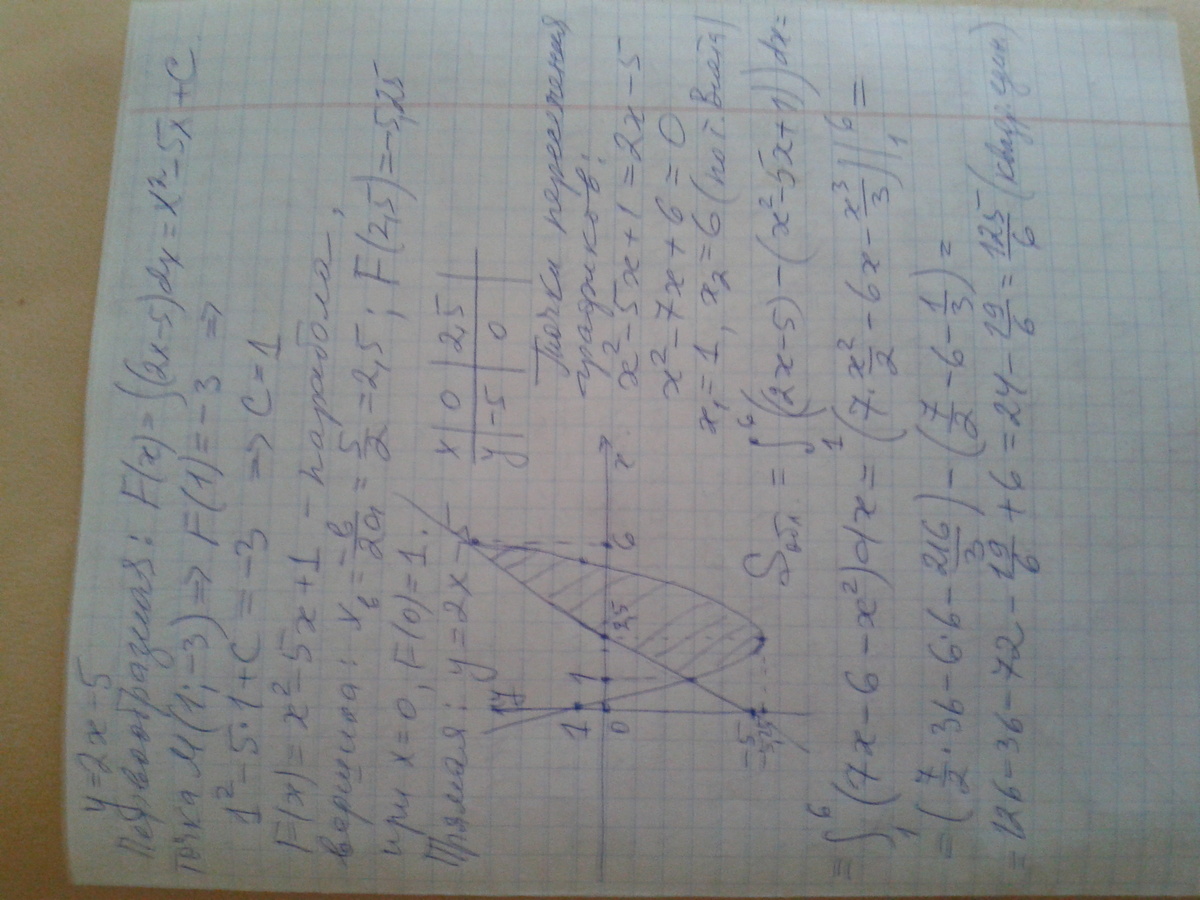 y=2x-5
Первообразная: F(x)=∫(2x-5)dx=x²-5x+C
точка M(1;-3)=> F(1)=-3 =>
1²-5·1+C=-3 => C=1
F(x)=x²-5x+1 - парабола,
вершина: x_в=-b/2a=5/2=2,5; F(2,5)=-5,25
при x=0, F(0)=1.
Прямая: y=2x-5
x | 0 | 2,5
y | -5 | 0
y
1
0
1
2,5
6
x
-5
-5,25
Точки пересечения
графиков:
x²-5x+1=2x-5
x²-7x+6=0
x₁=1, x₂=6 (по т. Виета)
S_обл = ∫₁⁶((2x-5)-(x²-5x+1))dx=
=∫₁⁶(7x-6-x²)dx=(7·x²/2-6x-x³/3)|₁⁶=
=(7/2·36-6·6-216/3)-(7/2-6-1/3)=
=126-36-72-19/6+6=24-19/6=125/6 (квадр. един)